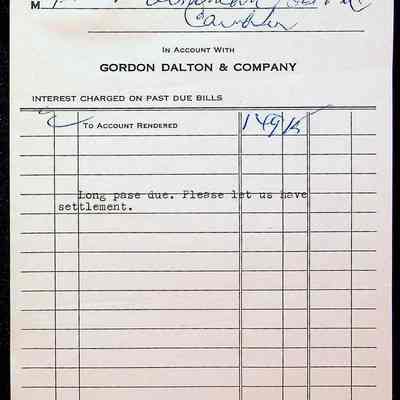 M
In Account With
GORDON DALTON & COMPANY
INTEREST CHARGED ON PAST DUE BILLS
To Account Rendered 149
Long pase due. Please let us have
settlement.